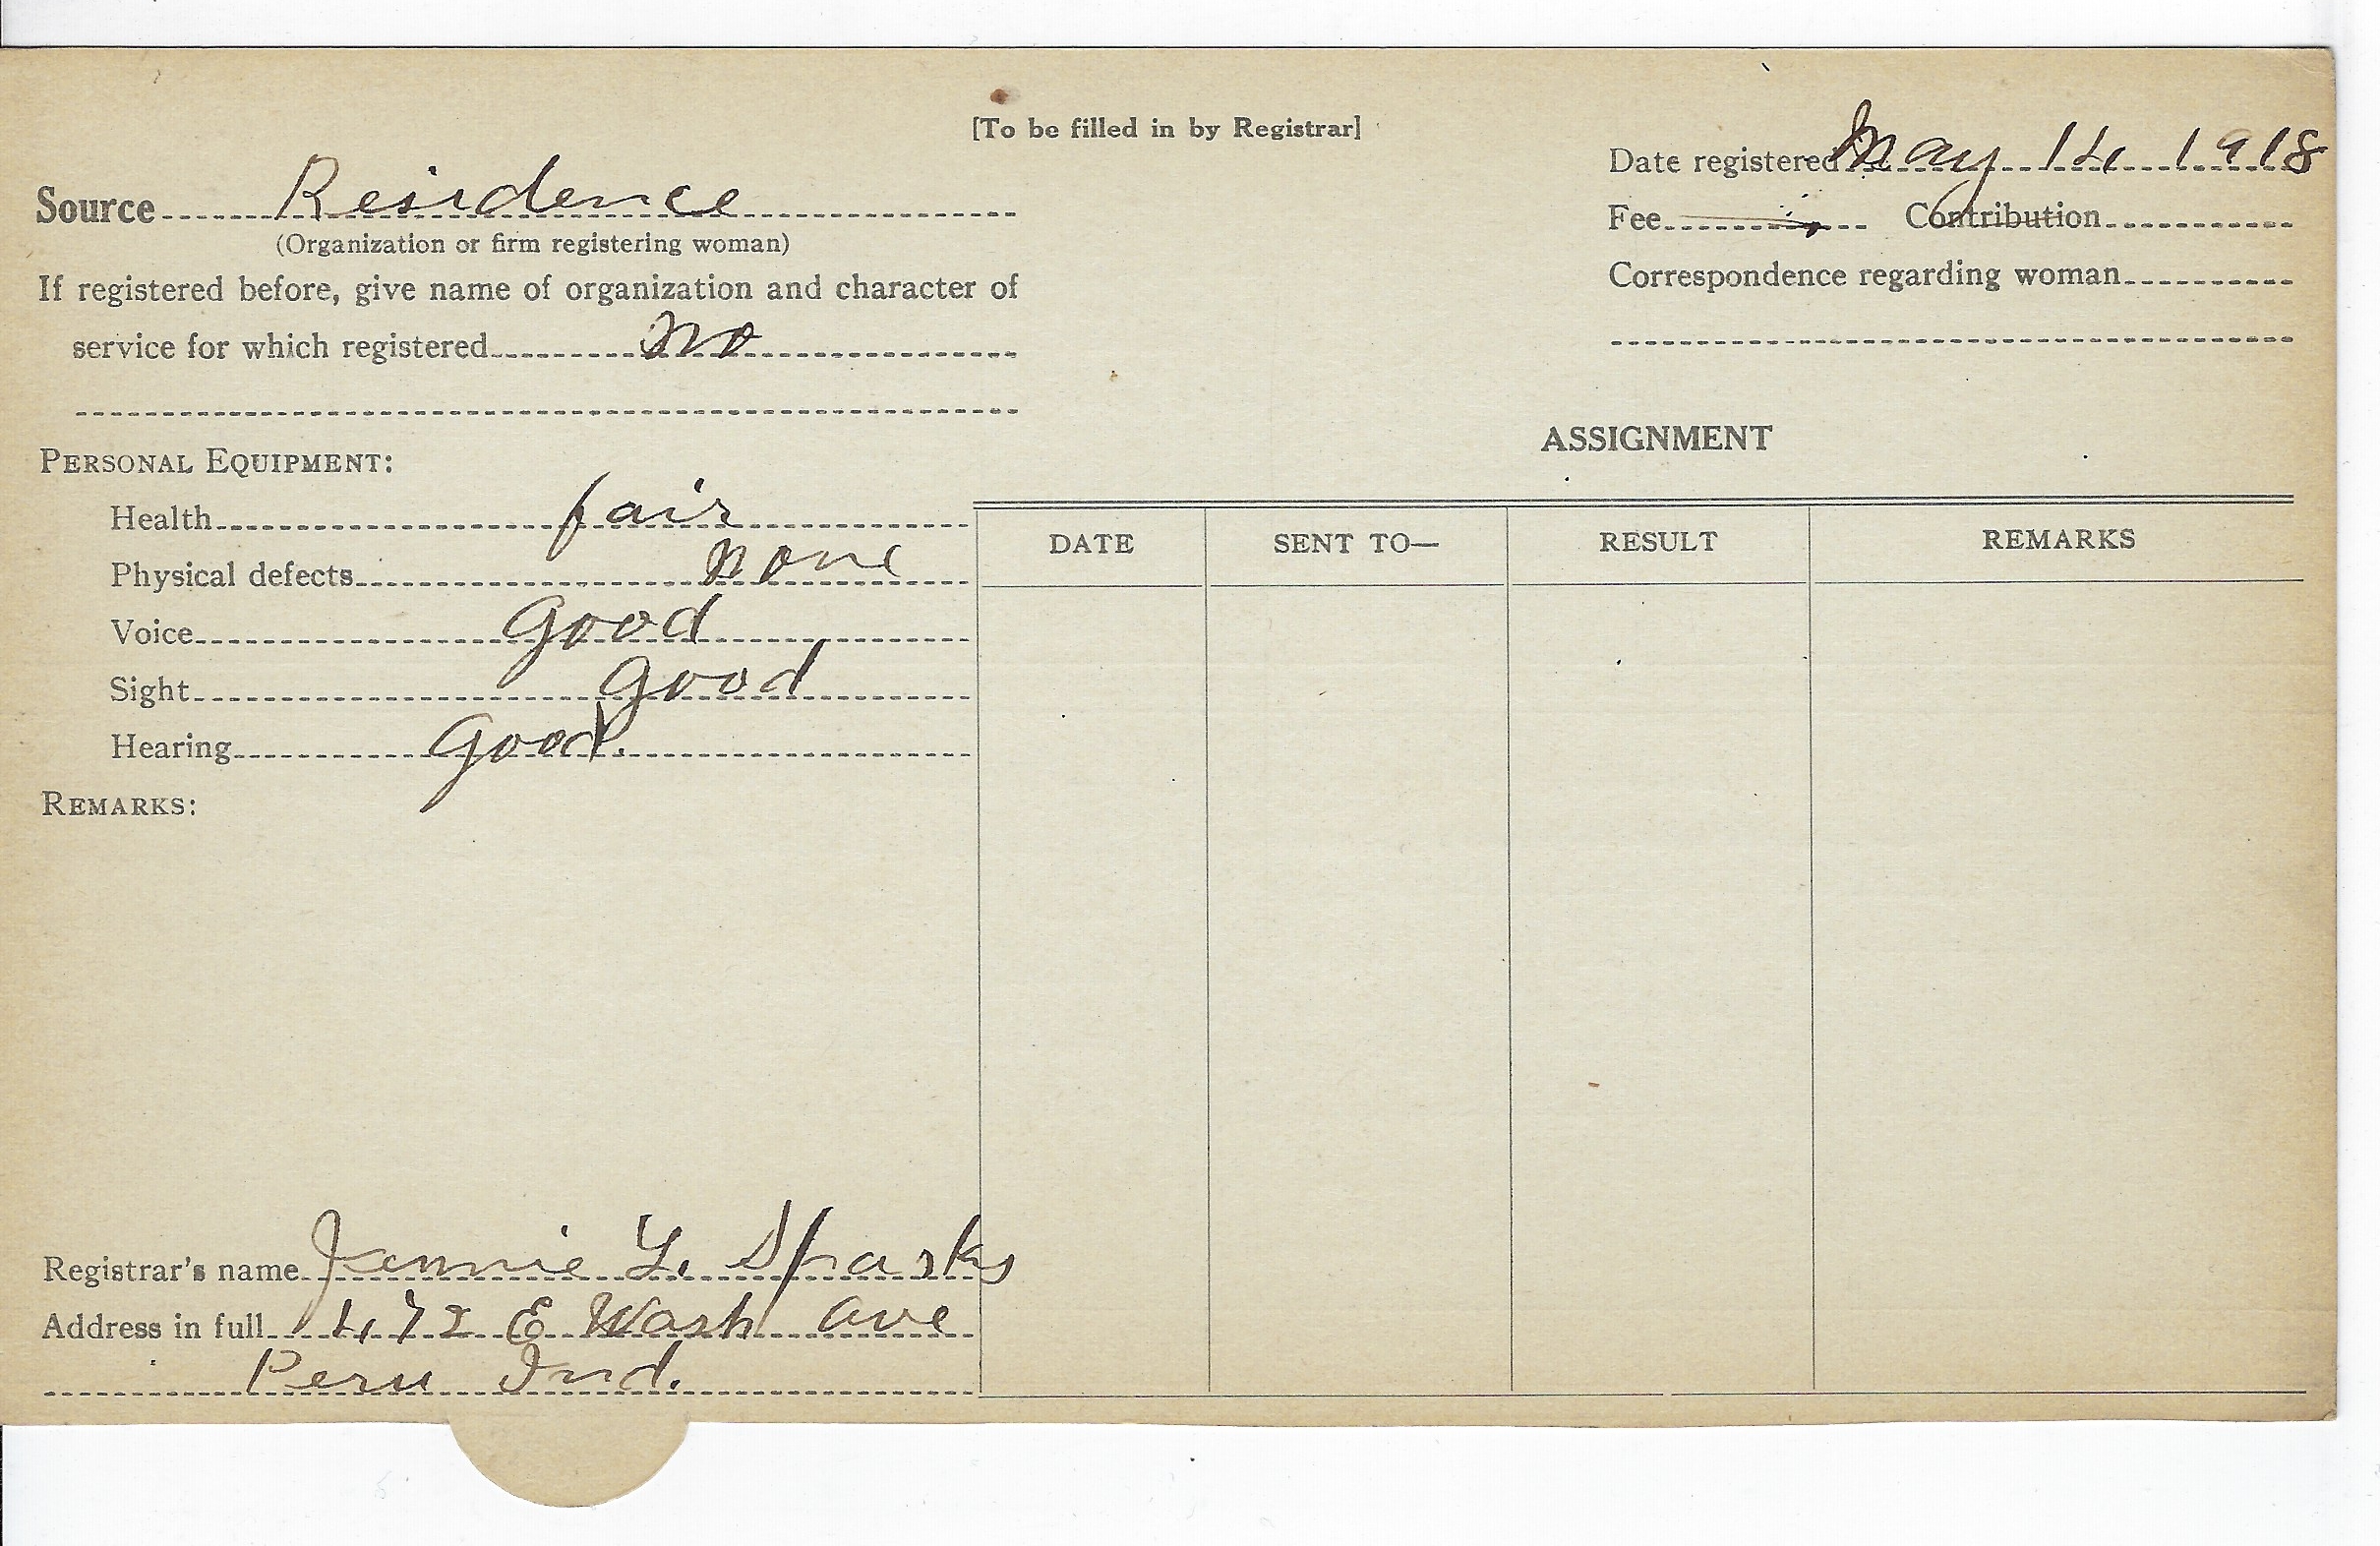 [To be filled in by Registrar]
Date registered May 14 1918
Source Residence
(Organization or firm registering woman)
Fee Contribution
If registered before, give name of organization and character of
Correspondence regarding woman
service for which registered no
ASSIGNMENT
PERSONAL EQUIPMENT:
Health fair
Physical defects none
Voice Good
Sight Good
Hearing Good.
REMARKS:
DATE SENT TO— RESULT REMARKS
Registrar's name Jennie Y. Sparks
Address in full 472 E Wash Ave
Peru Ind.